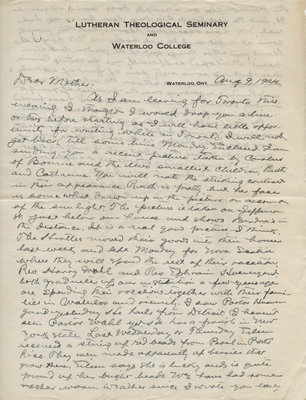 LUTHERAN THEOLOGICAL SEMINARY
AND
WATERLOO COLLEGE
WATERLOO, ONT. Aug. 9, 1924
Dear Mother:
As I am leaving for Toronto this
evening I thought I would drop you a line
or two before starting as I shall have little oppor
tunity for writing while in Toronto. I will not
get back till some time Monday. Enclosed I am
sending you a recent picture taken by
of Bonnie and the two smallest children, Ruth
and Catharine. You will note the striking contrast
in their appearance. Ruth is pretty but the face
is some what in the picture on account
of the sun light. The picture is taken on Jefferson
St. just below our house and shows
in the distance. It is a real good picture I think.
The moved their goods into their
last week and left Monday for Nova Scotia
where they will spend the rest of their vacation.
Rev. Henry and Rev. Ephraim
both graduates of our institution a few years ago
are spending their vacations together with their fami-
lies in Waterloo and vicinity. I saw Pastor
yesterday. He hails from Detroit. I haven't
seen Pastor yet. He has a parish in New
York State. Last Wednesday or Thursday
received a string of red beads from Pearl in Porto
Rico. They were made apparently of berries that
grow there. says she is lucky and is quite
proud of her bright beads. We have had some
rather warm weather since I wrote you last